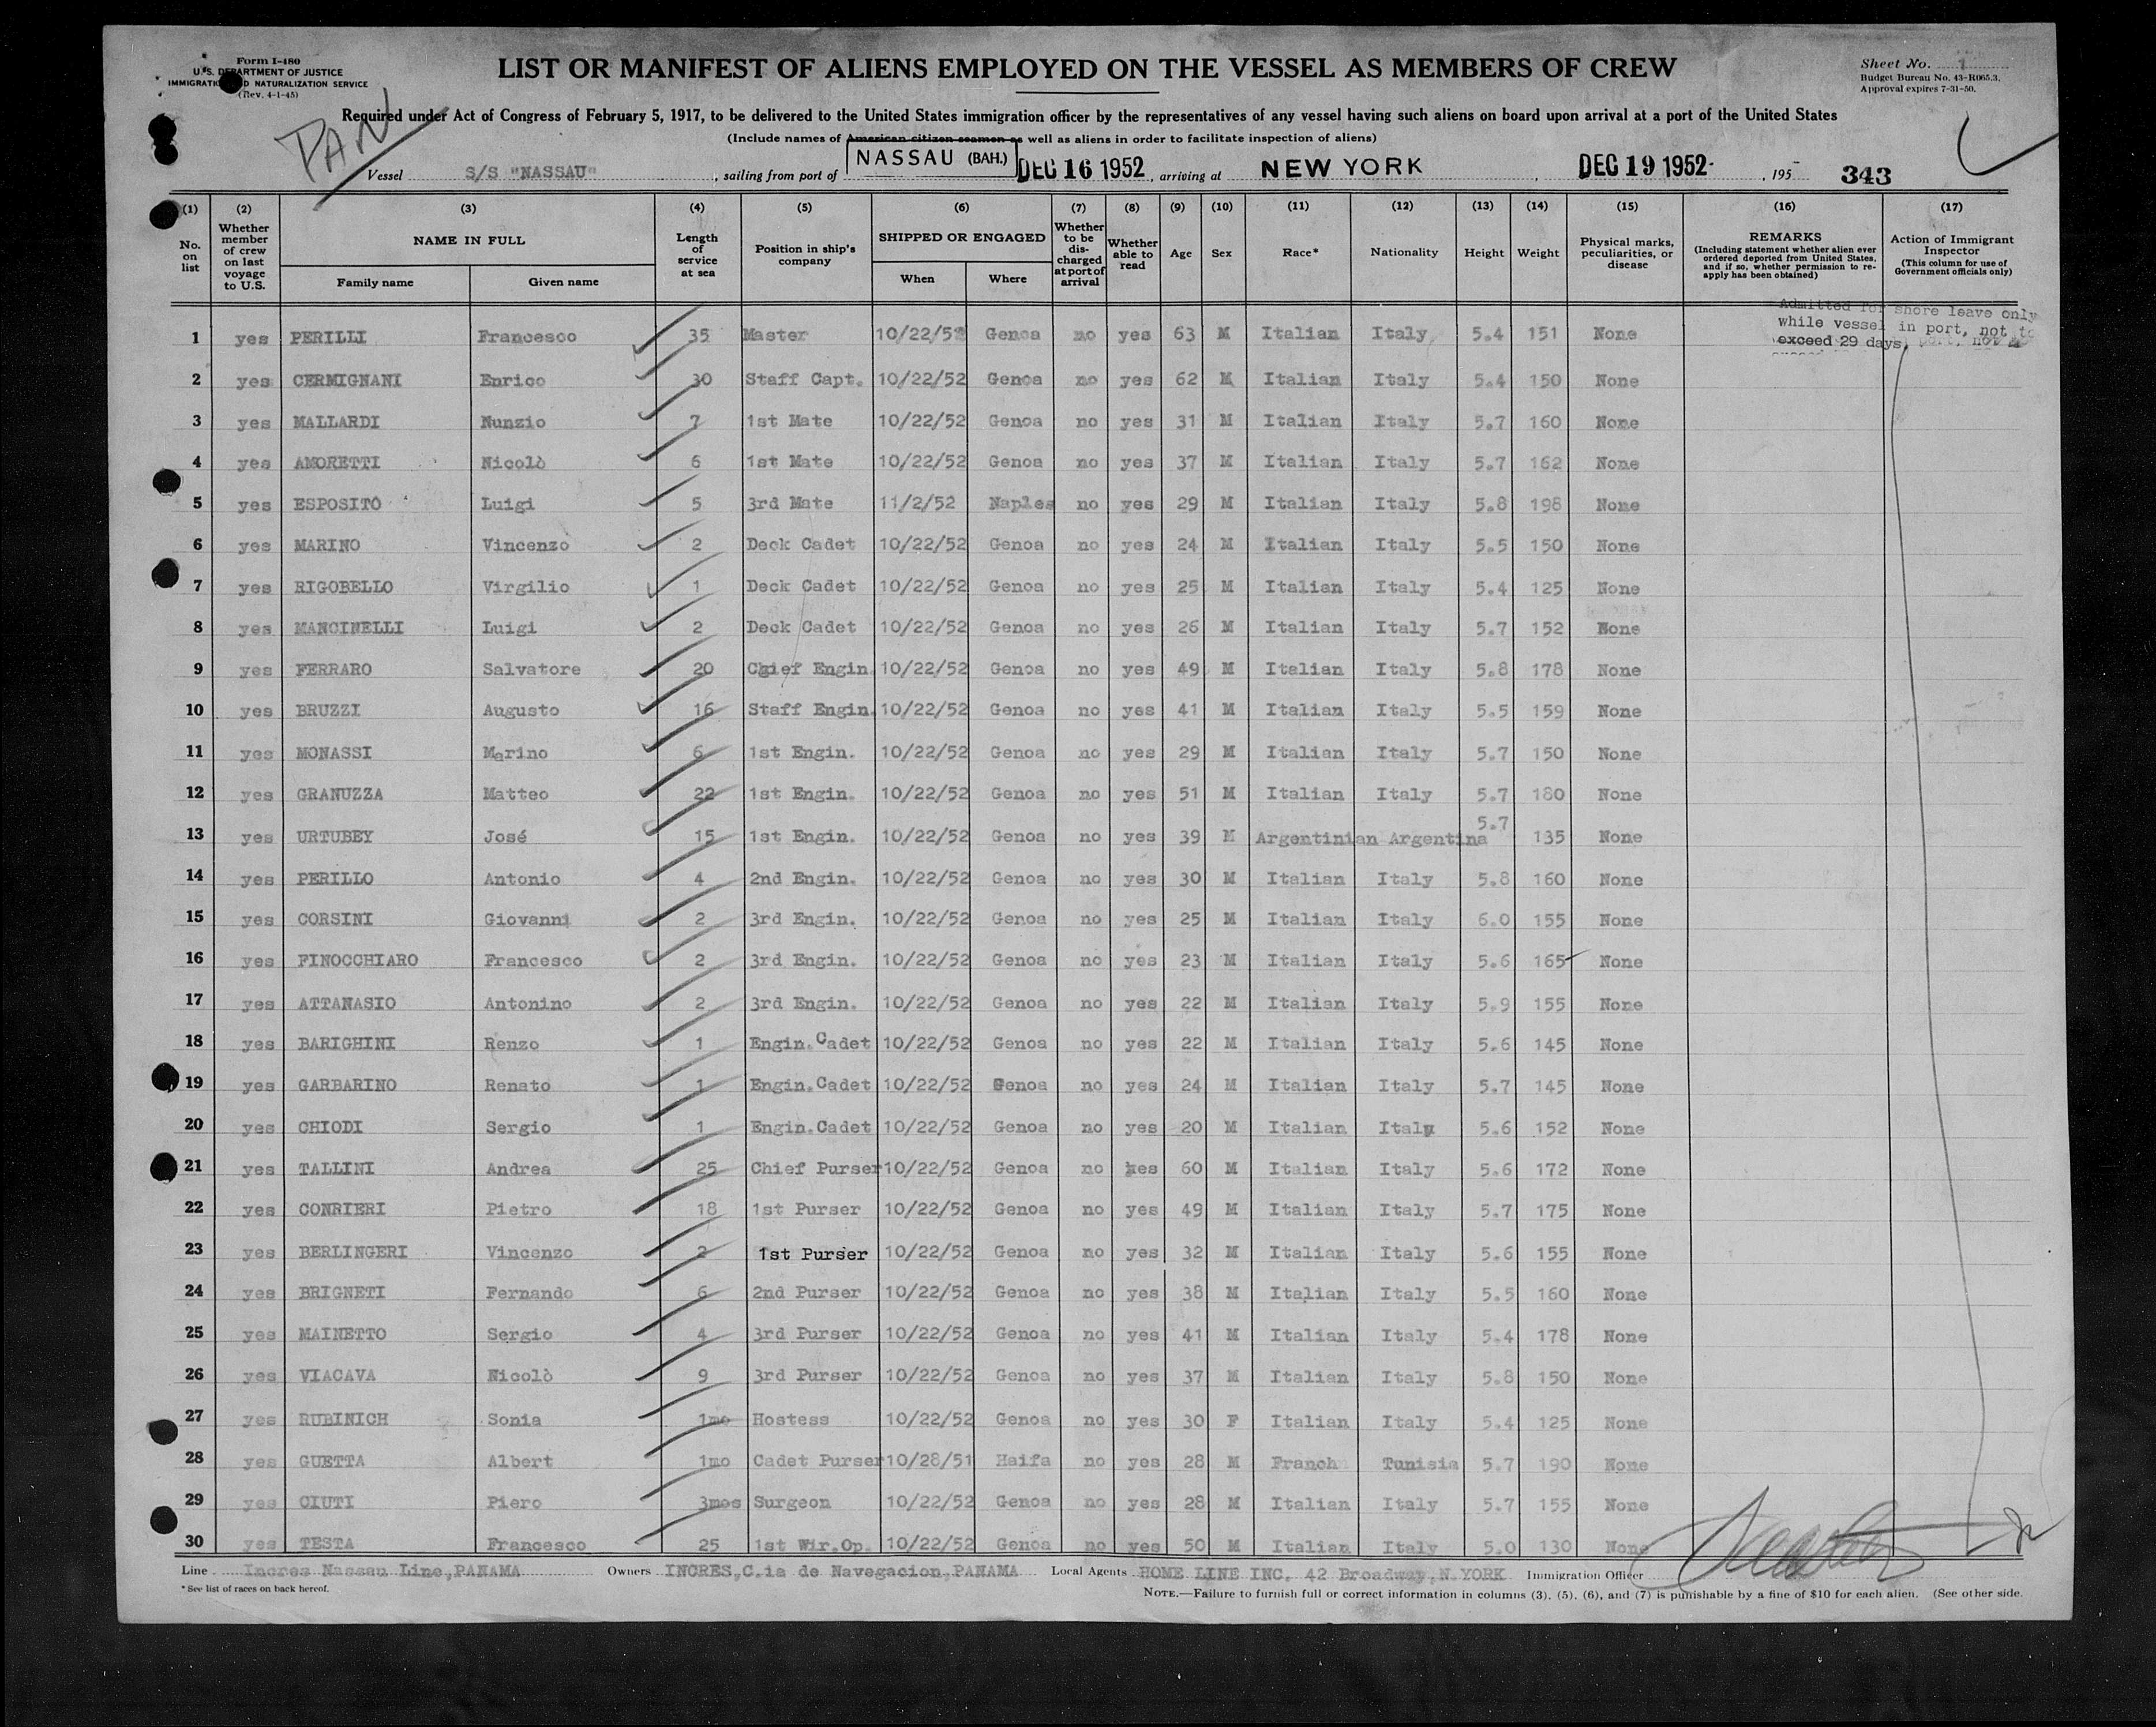 Form I-480
U. S. DEPARTMENT OF JUSTICE
IMMIGRATION AND NATURALIZATION SERVICE
(Rev. 4-1-45)
LIST OR MANIFEST OF ALIENS EMPLOYED ON THE VESSEL AS MEMBERS OF CREW
Sheet No. 1
Budget Bureau No. 43-R065.3.
Approval expires 7-31-50.
PAN
Required under Act of Congress of February 5, 1917, to be delivered to the United States immigration officer by the representatives of any vessel having such aliens on board upon arrival at a port of the United States
(Include names of American citizen seamen as well as aliens in order to facilitate inspection of aliens)
Vessel S/S "NASSAU", sailing from port of NASSAU (BAH.) DEC 16 1952, arriving at NEW YORK, DEC 19 1952, 195 343
(1) (2) (3) (4) (5) (6) (7) (8) (9) (10) (11) (12) (13) (14) (15) (16) (17)
No. on list
Whether member of crew on last voyage to U.S.
NAME IN FULL
Family name
Given name
Length of service at sea
Position in ship's company
SHIPPED OR ENGAGED
When
Where
Whether to be discharged at port of arrival
Whether able to read
Age
Sex
Race*
Nationality
Height
Weight
Physical marks, peculiarities, or disease
REMARKS
(Including statement whether alien ever ordered deported from United States, and if so, whether permission to reapply has been obtained)
Action of Immigrant Inspector
(This column for use of Government officials only)
Admitted for shore leave only
while vessel in port, not to
exceed 29 days
1 yes PERILLI Francesco 35 Master 10/22/52 Genoa no yes 63 M Italian Italy 5.4 151 None
2 yes CERMIGNANI Enrico 30 Staff Capt. 10/22/52 Genoa no yes 62 M Italian Italy 5.4 150 None
3 yes MALLARDI Nunzio 7 1st Mate 10/22/52 Genoa no yes 31 M Italian Italy 5.7 160 None
4 yes AMORETTI Nicolò 6 1st Mate 10/22/52 Genoa no yes 37 M Italian Italy 5.7 162 None
5 yes ESPOSITO Luigi 5 3rd Mate 11/2/52 Naples no yes 29 M Italian Italy 5.8 198 None
6 yes MARINO Vincenzo 2 Deck Cadet 10/22/52 Genoa no yes 24 M Italian Italy 5.5 150 None
7 yes RIGOBELLO Virgilio 1 Deck Cadet 10/22/52 Genoa no yes 25 M Italian Italy 5.4 125 None
8 yes MANCINELLI Luigi 2 Deck Cadet 10/22/52 Genoa no yes 26 M Italian Italy 5.7 152 None
9 yes FERRARO Salvatore 20 Chief Engin. 10/22/52 Genoa no yes 49 M Italian Italy 5.8 178 None
10 yes BRUZZI Augusto 16 Staff Engin. 10/22/52 Genoa no yes 41 M Italian Italy 5.5 159 None
11 yes MONASSI Marino 6 1st Engin. 10/22/52 Genoa no yes 29 M Italian Italy 5.7 150 None
12 yes GRANUZZA Matteo 22 1st Engin. 10/22/52 Genoa no yes 51 M Italian Italy 5.7 180 None
13 yes URTUBEY José 15 1st Engin. 10/22/52 Genoa no yes 39 M Argentinian Argentina 5.7 135 None
14 yes PERILLO Antonio 4 2nd Engin. 10/22/52 Genoa no yes 30 M Italian Italy 5.8 160 None
15 yes CORSINI Giovanni 2 3rd Engin. 10/22/52 Genoa no yes 25 M Italian Italy 6.0 155 None
16 yes FINOCCHIARO Francesco 2 3rd Engin. 10/22/52 Genoa no yes 23 M Italian Italy 5.6 165 None
17 yes ATTANASIO Antonino 2 3rd Engin. 10/22/52 Genoa no yes 22 M Italian Italy 5.9 155 None
18 yes BARIGHINI Renzo 1 Engin. Cadet 10/22/52 Genoa no yes 22 M Italian Italy 5.6 145 None
19 yes GARBARINO Renato 1 Engin. Cadet 10/22/52 Genoa no yes 24 M Italian Italy 5.7 145 None
20 yes CHIODI Sergio 1 Engin. Cadet 10/22/52 Genoa no yes 20 M Italian Italy 5.6 152 None
21 yes TALLINI Andrea 25 Chief Purser 10/22/52 Genoa no yes 60 M Italian Italy 5.6 172 None
22 yes CONRIERI Pietro 18 1st Purser 10/22/52 Genoa no yes 49 M Italian Italy 5.7 175 None
23 yes BERLINGERI Vincenzo 2 1st Purser 10/22/52 Genoa no yes 32 M Italian Italy 5.6 155 None
24 yes BRIGNETI Fernando 6 2nd Purser 10/22/52 Genoa no yes 38 M Italian Italy 5.5 160 None
25 yes MAINETTO Sergio 4 3rd Purser 10/22/52 Genoa no yes 41 M Italian Italy 5.4 178 None
26 yes VIACAVA Nicolò 9 3rd Purser 10/22/52 Genoa no yes 37 M Italian Italy 5.8 150 None
27 yes RUBINICH Sonia 1mo Hostess 10/22/52 Genoa no yes 30 F Italian Italy 5.4 125 None
28 yes GUETTA Albert 1mo Cadet Purser 10/28/51 Haifa no yes 28 M Franch Tunisia 5.7 190 None
29 yes CIUTI Piero 3mos Surgeon 10/22/52 Genoa no yes 28 M Italian Italy 5.7 155 None
30 yes TESTA Francesco 25 1st Wir.Op. 10/22/52 Genoa no yes 50 M Italian Italy 5.0 130 None
Line Incres Nassau Line, PANAMA Owners INCRES, C.ia de Navegacion, PANAMA Local Agents HOME LINE INC. 42 Broadway, N.YORK Immigration Officer
* See list of races on back hereof.
NOTE.—Failure to furnish full or correct information in columns (3), (5), (6), and (7) is punishable by a fine of $10 for each alien. (See other side.